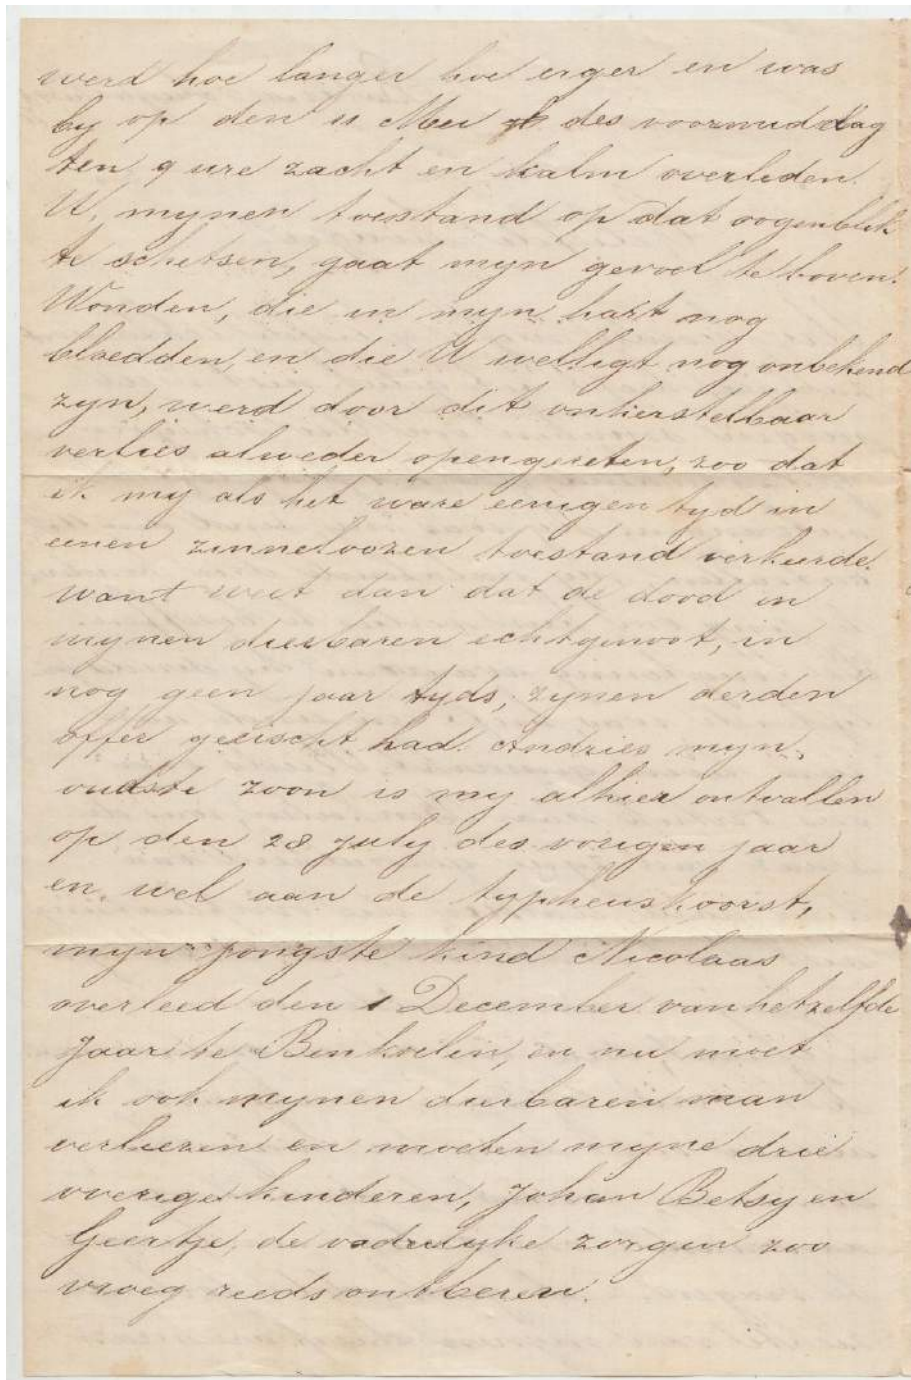 werd hoe langer hoe erger en was
by op den 11 Mei des voormiddag
ten 9 ure zacht en kalm overleden.
U, mynen toestand op dat oogenblik
te schetsen, gaat myn gevoel te boven.
Wonden, die in myn hart nog
bloedden, en die U welligt nog onbekend
zyn, werd door dit onherstelbaar
verlies alweder opengereten, zoo dat
ik my als het ware eenigen tyd in
eenen zinneloozen toestand verkeerde.
want weet dan dat de dood in
mynen dierbaren echtgenoot, in
nog geen jaar tyds, zynen derden
offer geeischt had. Andries myn
oudste zoon is my alhier ontvallen
op den 28 July des vorigen jaar
en wel aan de typheuskoorst,
myn jongste kind Nicolaas
overleed den 1 December van hetzelfde
jaar te Benkoelin, en nu moet
ik ook mynen dierbaren man
verliezen en moeten myne drie
overige kinderen, Johan Betsy en
Geertje, de vaderlyke zorgen zoo
vroeg reeds ontberen.